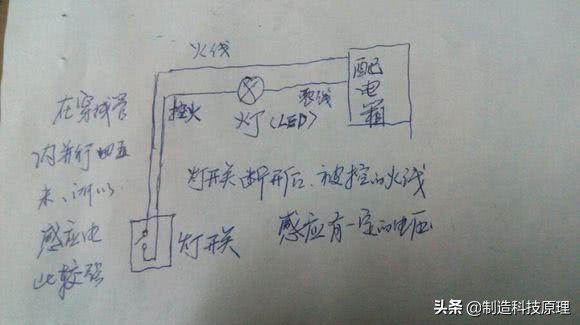 火线
配
电
箱
控火
零线
灯(LED)
在穿线管
内并行
来、所以
感应电
比较强
灯开关
灯开关断开后、被控的火线
感应有一定的电压
头条 @制造科技原理